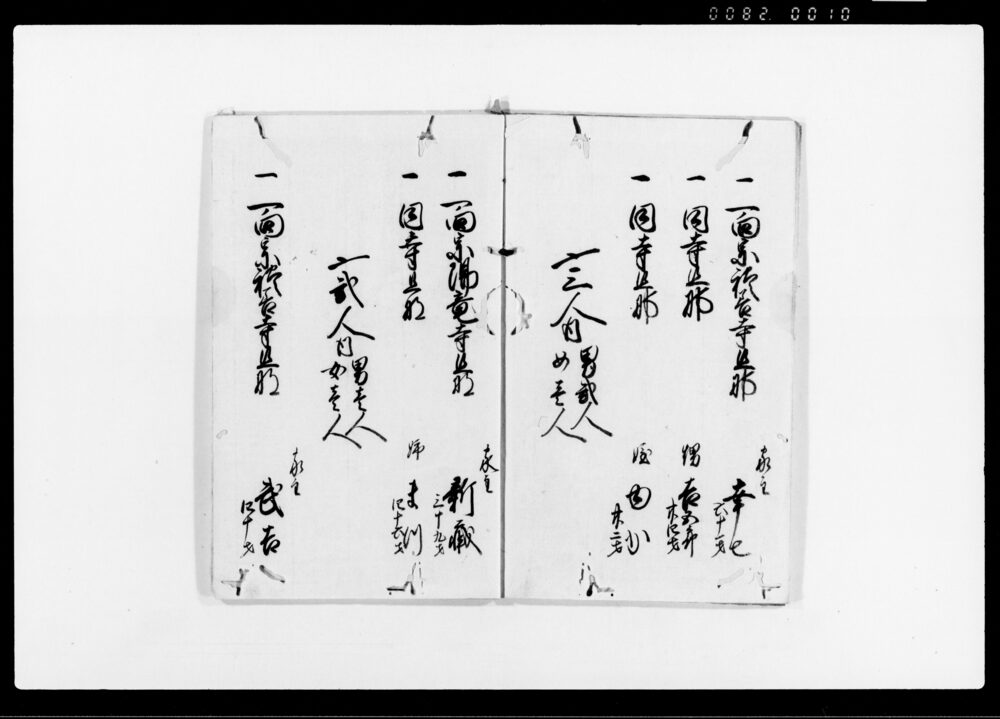 0082 0010
一 一向宗 寺旦那
家主
幸七
六十一才
一 同寺旦那
甥 吉五郎
廿四才
一 同寺旦那
姪
廿二才
〆三人内
男弐人
女壱人
一 一向宗陽竜寺旦那
家主
新蔵
三十九才
一 同寺旦那
姉
四十六才
〆弐人内
男壱人
女壱人
一 一向宗 寺旦那
家主
武吉
四十才